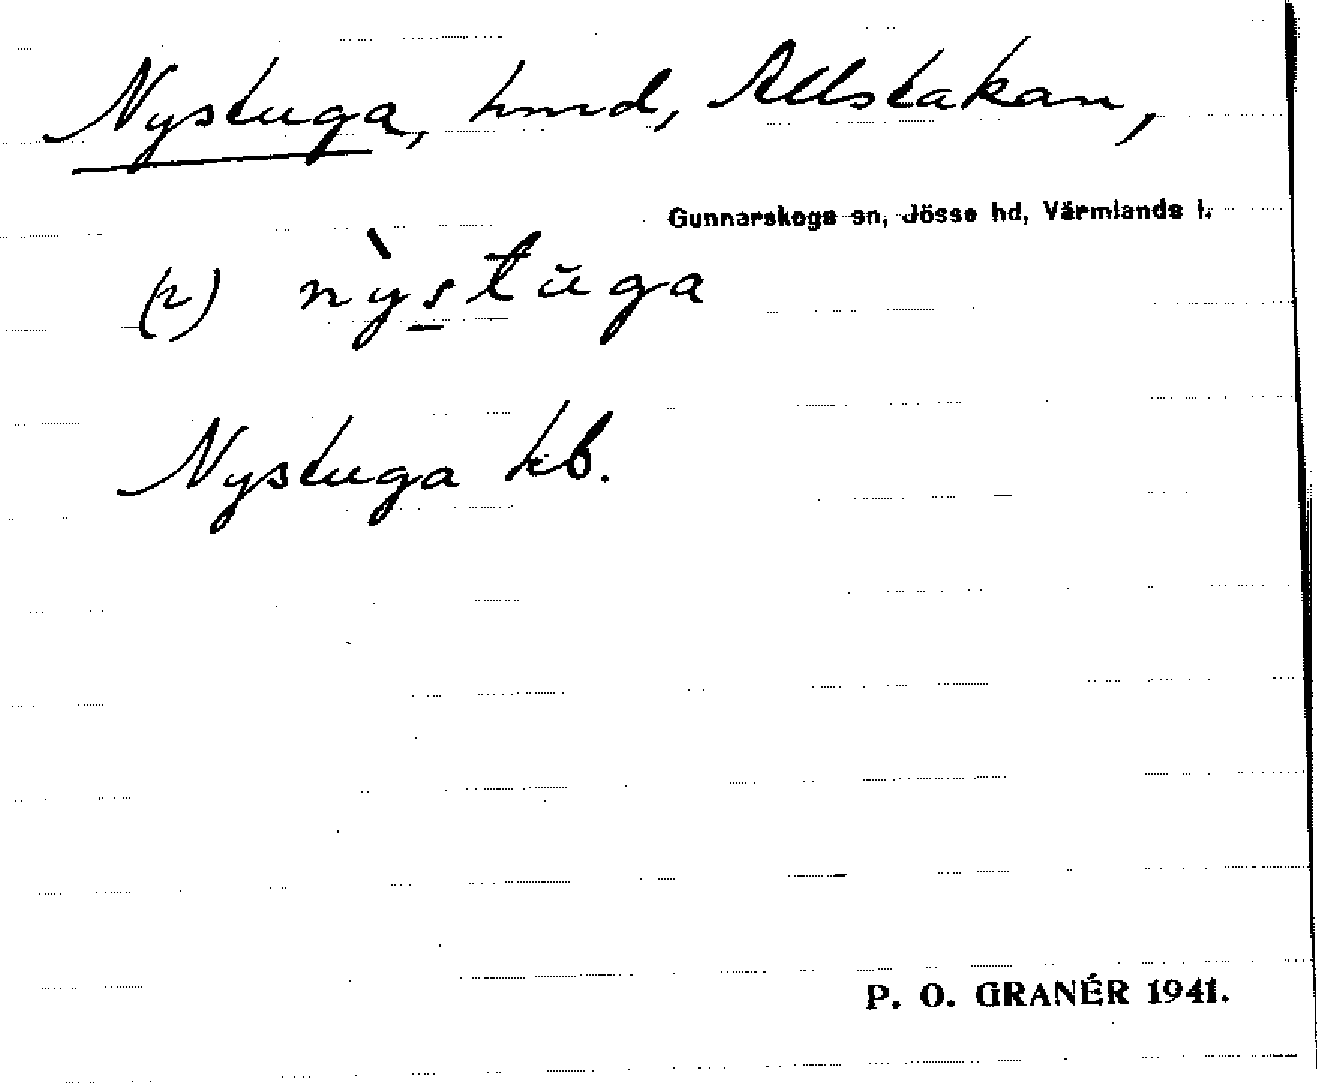 Nystuga, hmd, Allstakan,
Gunnarskogs sn, Jösse hd, Värmlands l.
(2) nỳstŭga
Nystuga kb.
P. O. GRANÉR 1941.